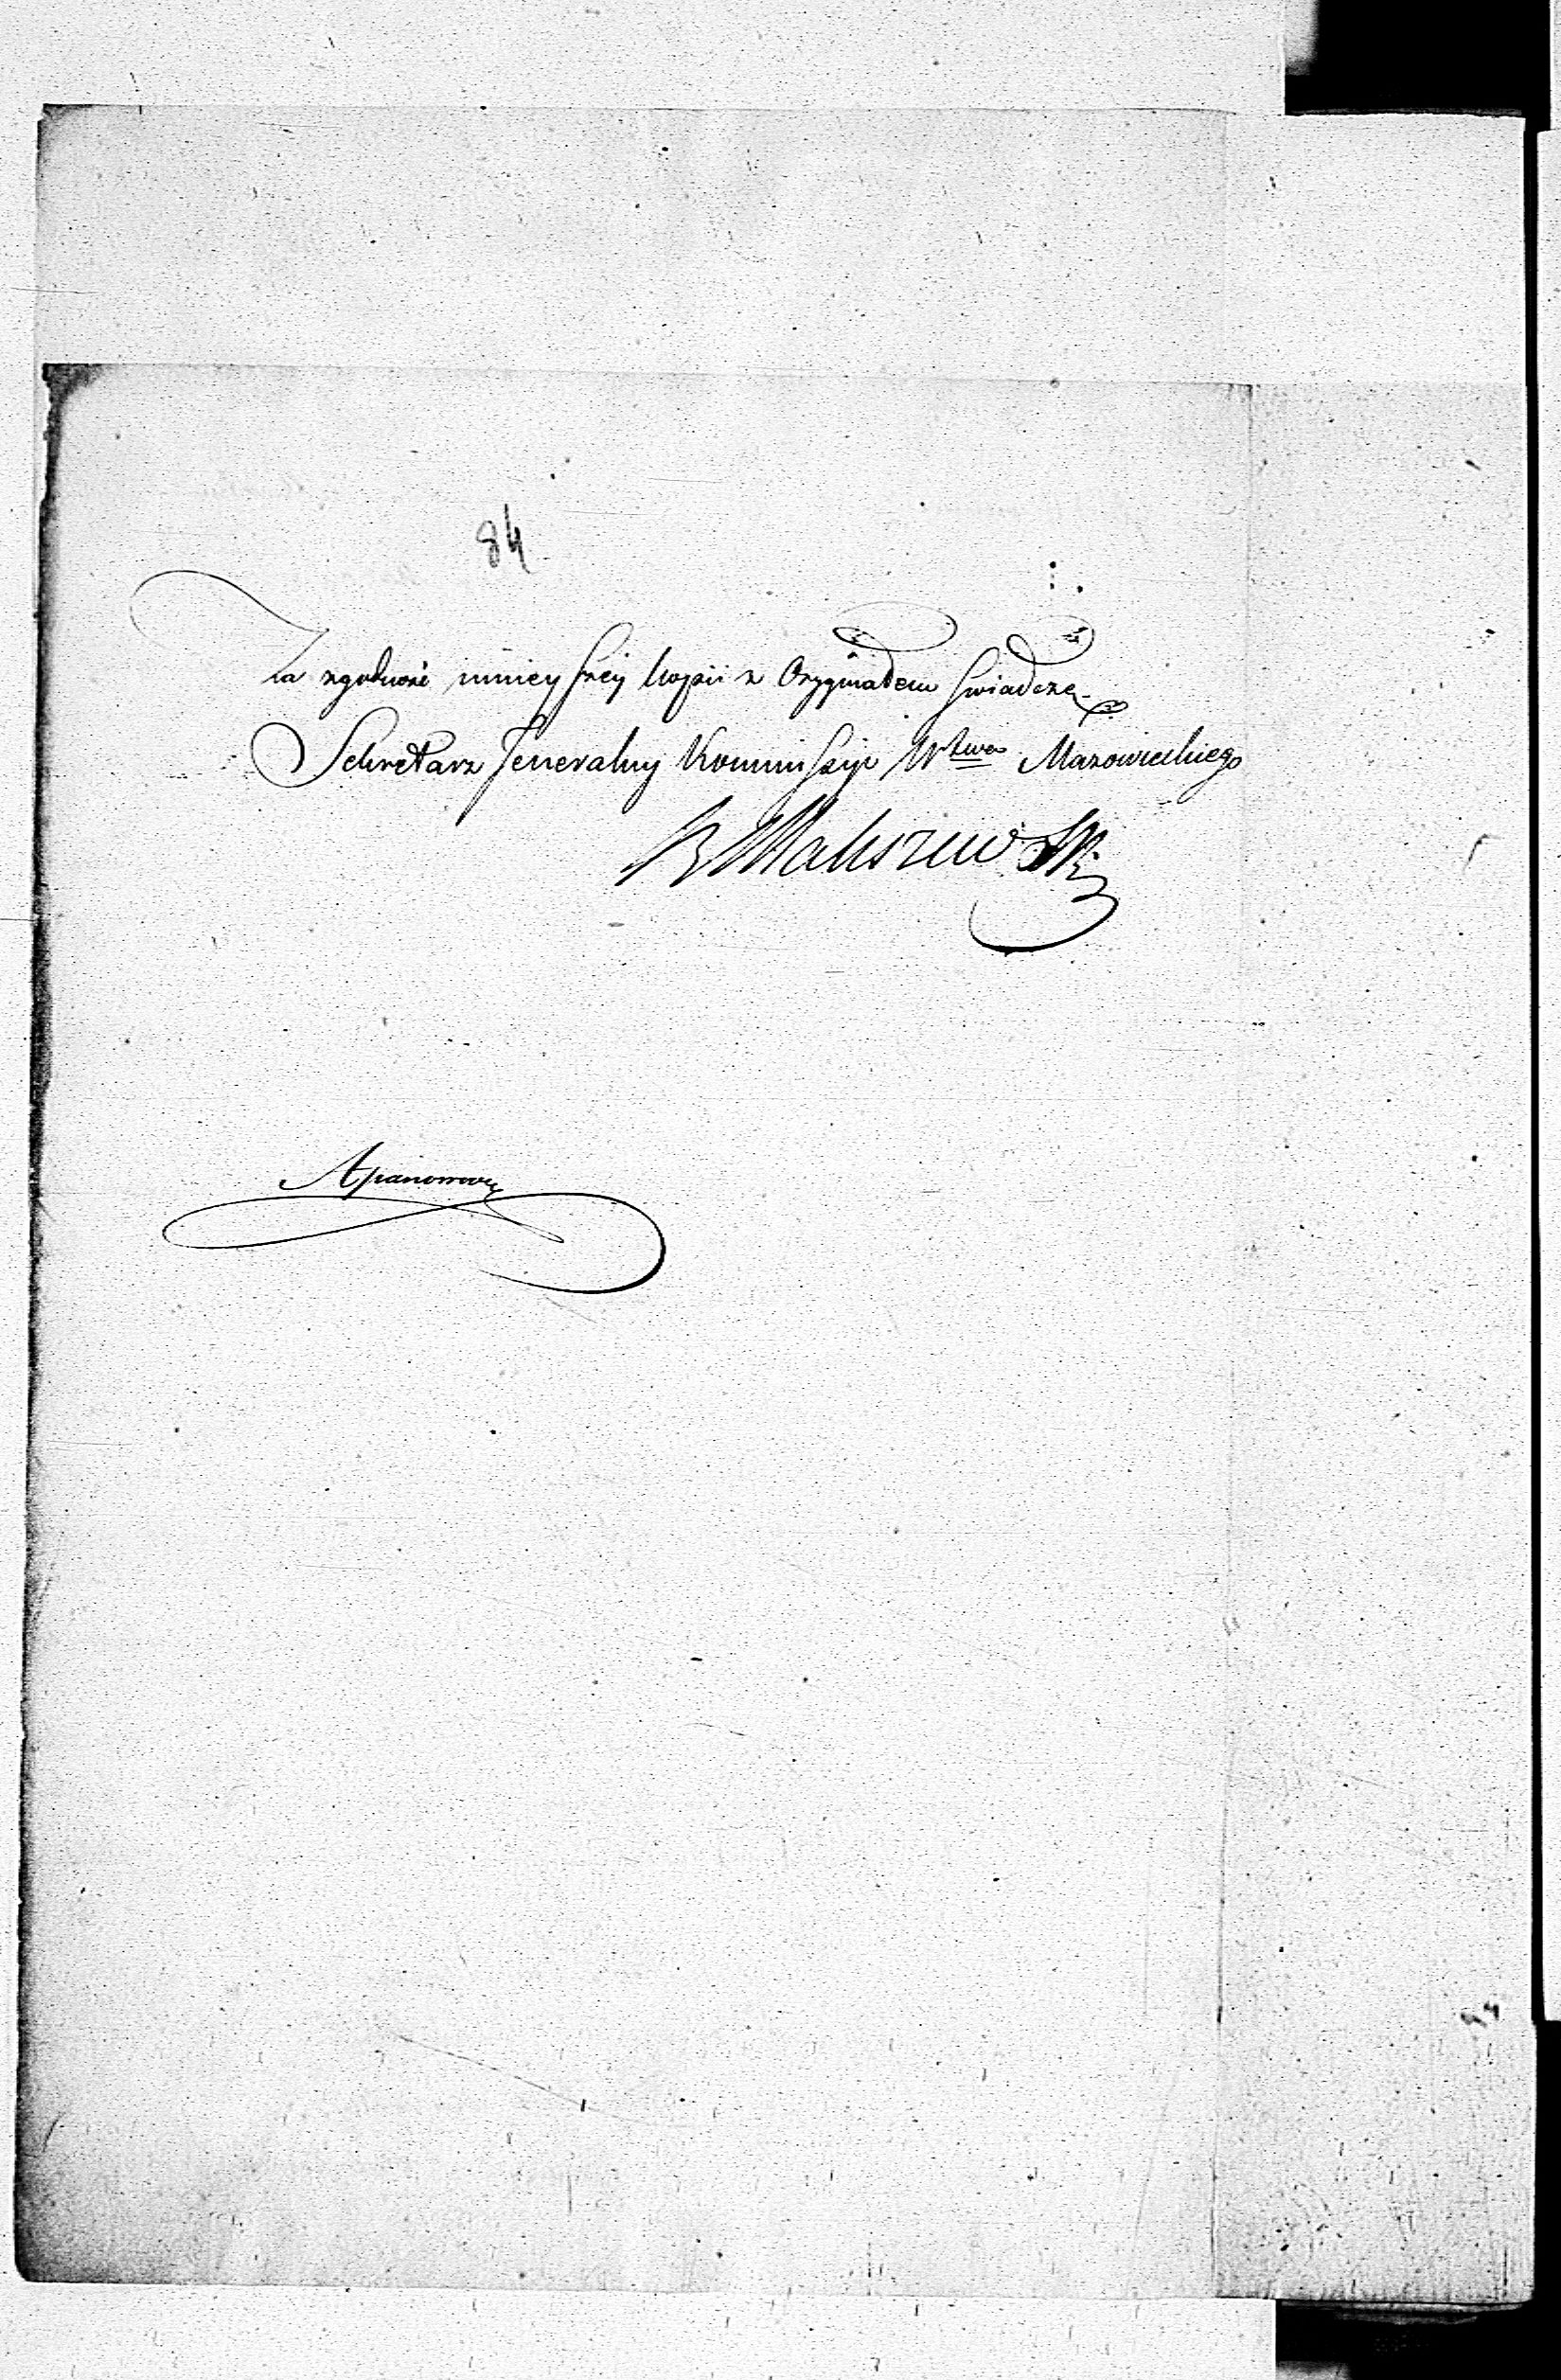 84
Za zgodność ninieyszey kopii z Oryginałem świadczę
Sekretarz Jeneralny Kommissyi Wtwa Mazowieckiego
Maliszewski